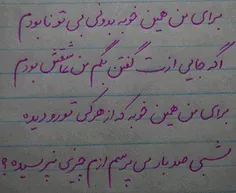 برای من همین خوبه بدونی بی تو نابودم
اگه جایی ازت گفتن بگم من عاشقش بودم
برای من همین خوبه که از هرکی تو رو دیده
شبی صد بار می پرسم ازم چیزی نپرسیده؟